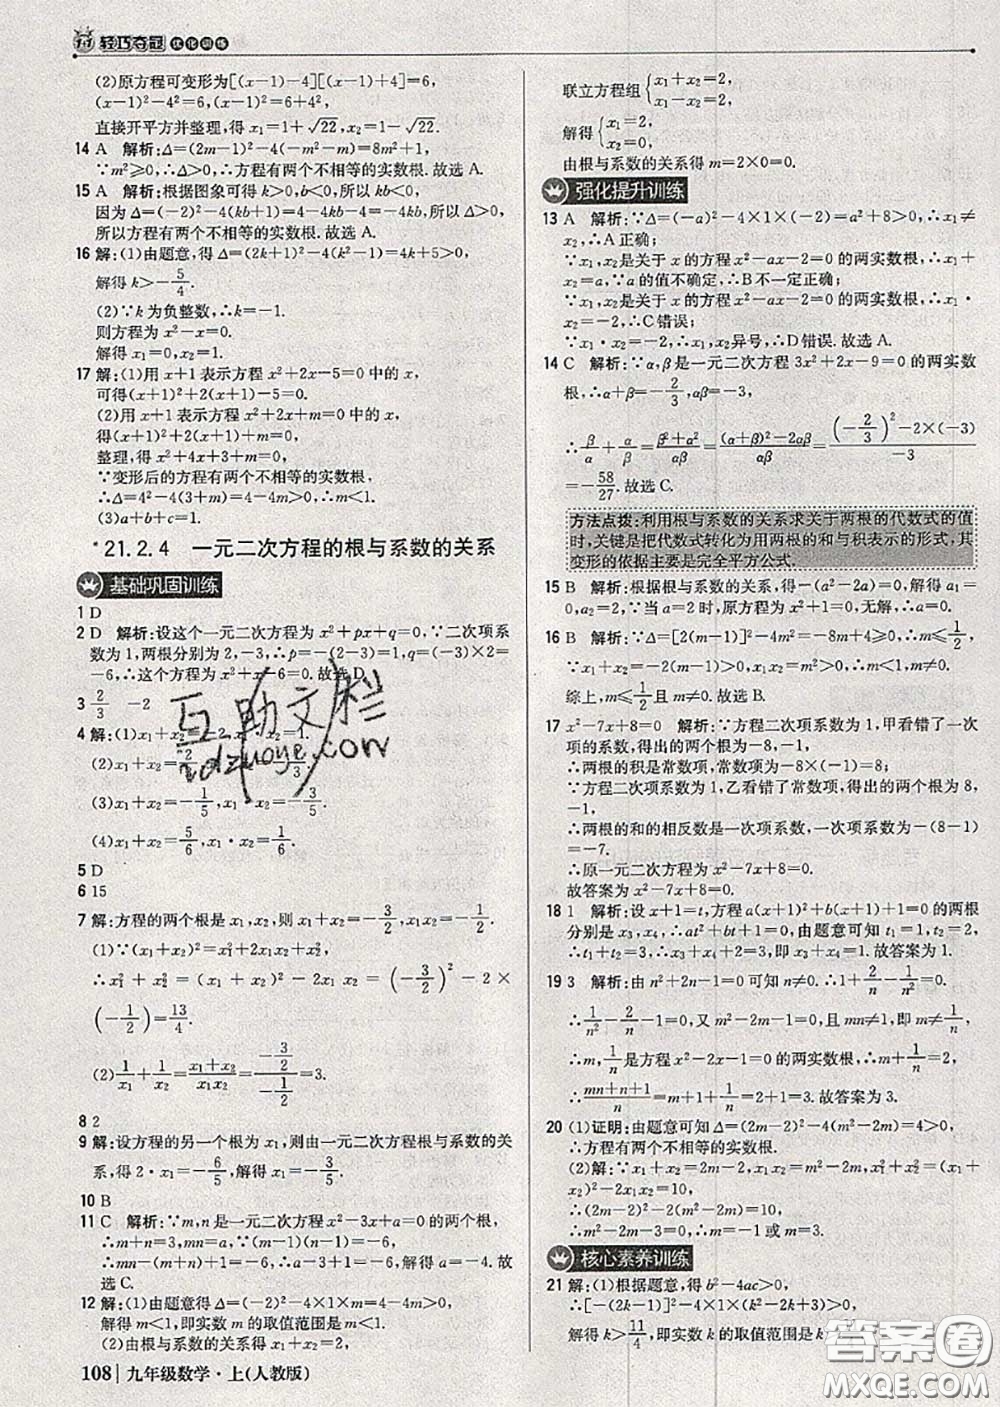 1+1 轻巧夺冠 优化训练
(2)原方程可变形为[(x-1)-4][(x-1)+4]=6,
(x-1)²-4²=6,(x-1)²=6+4²,
直接开平方并整理,得 x₁=1+√22,x₂=1-√22.
14 A 解析:Δ=(2m-1)²-4(-m²-m)=8m²+1,
∵m²≥0,∴Δ>0,∴方程有两个不相等的实数根.故选 A.
15 A 解析:根据图象可得 k>0,b<0,所以 kb<0,
因为 Δ=(-2)²-4(kb+1)=4-4kb-4=-4kb,所以Δ>0,
所以方程有两个不相等的实数根.故选 A.
16 解:(1)由题意,得 Δ=(2k+1)²-4k²=4k+5>0,
解得 k>-5/4.
(2)∵k 为负整数,∴k=-1.
则方程为 x²-x=0.
解得 x₁=0,x₂=1.
17 解:(1)用 x+1 表示方程 x²+2x-5=0 中的 x,
可得(x+1)²+2(x+1)-5=0.
(2)用 x+1 表示方程 x²+2x+m=0 中的 x,
得(x+1)²+2(x+1)+m=0.
整理,得 x²+4x+3+m=0.
∵变形后的方程有两个不相等的实数根,
∴Δ=4²-4(3+m)=4-4m>0,∴m<1.
(3)a+b+c=0.
*21.2.4 一元二次方程的根与系数的关系
基础巩固训练
1 D
2 D 解析:设这个一元二次方程为 x²+px+q=0,∵二次项系
数为 1,两根分别为 2,-3,∴p=-(2-3)=1,q=(-3)×2=
-6,∴这个方程为 x²+x-6=0.故选 D.
3 2/3 -2
4 解:(1)x₁+x₂=
(2)x₁+x₂=
(3)x₁+x₂=-1/5,x₁·x₂=-3/5.
(4)x₁+x₂=5/6,x₁·x₂=1/6.
5 D
6 15
7 解:方程的两个根是 x₁,x₂,则 x₁+x₂=-3/2,x₁x₂=-1/2.
(1)∵(x₁+x₂)²=x₁²+2x₁x₂+x₂²,
∴x₁²+x₂²=(x₁+x₂)²-2x₁x₂=(-3/2)²-2×
(-1/2)=13/4.
(2)1/x₁+1/x₂=(x₁+x₂)/(x₁x₂)=(-3/2)/(-1/2)=3.
8 2
9 解:设方程的另一个根为 x₁,则由一元二次方程根与系数的关
系,得 2·x₁=-6/5,解得 x₁=-3/5.
10 B
11 C 解析:∵m,n 是一元二次方程 x²-3x+a=0 的两个根,
∴m+n=3,mn=a.∵(m-1)(n-1)=-6,
∴mn-(m+n)+1=-6,∴a-3+1=-6,解得 a=-4.故
选 C.
12 解:(1)由题意得 Δ=(-2)²-4×1×m=4-4m>0,
解得 m<1,即实数 m 的取值范围是 m<1.
(2)由根与系数的关系得 x₁+x₂=2,
联立方程组{x₁+x₂=2,
x₁-x₂=2,
解得{x₁=2,
x₂=0,
由根与系数的关系得 m=2×0=0.
强化提升训练
13 A 解析:∵Δ=(-a)²-4×1×(-2)=a²+8>0,∴x₁≠
x₂,∴A 正确;
∵x₁,x₂是关于 x 的方程 x²-ax-2=0 的两实数根,∴x₁+
x₂=a,∵a 的值不确定,∴B 不一定正确;
∵x₁,x₂是关于 x 的方程 x²-ax-2=0 的两实数根,∴x₁·
x₂=-2,∴C 错误;
∵x₁·x₂=-2,∴x₁,x₂异号,∴D 错误.故选 A.
14 C 解析:∵α,β是一元二次方程 3x²+2x-9=0 的两实数
根,∴α+β=-2/3,αβ=-3,
∴β/α+α/β=(β²+α²)/αβ=((α+β)²-2αβ)/αβ=((-2/3)²-2×(-3))/-3
=-58/27.故选 C.
方法点拨:利用根与系数的关系求关于两根的代数式的值
时,关键是把代数式转化为用两根的和与积表示的形式,其
变形的依据主要是完全平方公式.
15 B 解析:根据根与系数的关系,得-(a²-2a)=0,解得 a₁=
0,a₂=2,∵当 a=2 时,原方程为 x²+1=0,无解,∴a=0.
16 B 解析:∵Δ=[2(m-1)]²-4m²=-8m+4≥0,∴m≤1/2,
∵x₁+x₂=-2(m-1)>0,x₁x₂=m²>0,∴m<1,m≠0.
综上,m≤1/2且 m≠0.故选 B.
17 x²-7x+8=0 解析:∵方程二次项系数为 1,甲看错了一次
项的系数,得出的两个根为-8,-1,
∴两根的积是常数项,即常数项为-8×(-1)=8.
∵方程二次项系数为 1,乙看错了常数项,得出的两个根为
8,-1.
∴两根的和的相反数是一次项系数,即一次项系数为-(8-1)
=-7.
∴原一元二次方程为 x²-7x+8=0.
故答案为 x²-7x+8=0.
18 1 解析:设 x+1=t,方程 a(x+1)²+b(x+1)+1=0 的两根
分别是 x₃,x₄,∴at²+bt+1=0,由题意可知 t₁=1,t₂=2,
∴t₁+t₂=3,∴x₃+x₄+2=3,即 x₃+x₄=1.故答案为 1.
19 3 解析:由 n²+2n-1=0 可知 n≠0.∴1+2/n-1/n²=0.
∴1/n²-2/n-1=0,又 m²-2m-1=0,且 mn≠1,即 m≠1/n,
∴m,1/n是方程 x²-2x-1=0 的两实数根,∴m+1/n=2,
∴(mn+n+1)/n=m+1+1/n=2+1=3.故答案为 3.
20 (1)证明:由题意可知 Δ=(2m-2)²-4(m²-2m)=4>0,
∴方程有两个不相等的实数根.
(2)解:∵x₁+x₂=2m-2,x₁x₂=m²-2m,x₁²+x₂²=(x₁+
x₂)²-2x₁x₂=10,
∴(2m-2)²-2(m²-2m)=10,
∴m²-2m-3=0,∴m=-1 或 m=3.
核心素养训练
21 解:(1)根据题意,得 b²-4ac>0,
∴[-(2k-1)]²-4×1×(k²-2k+3)>0,
解得 k>11/4,即实数 k 的取值范围是 k>
108 九年级数学·上(人教版)
互助文档
答案圈
MXQE.COM